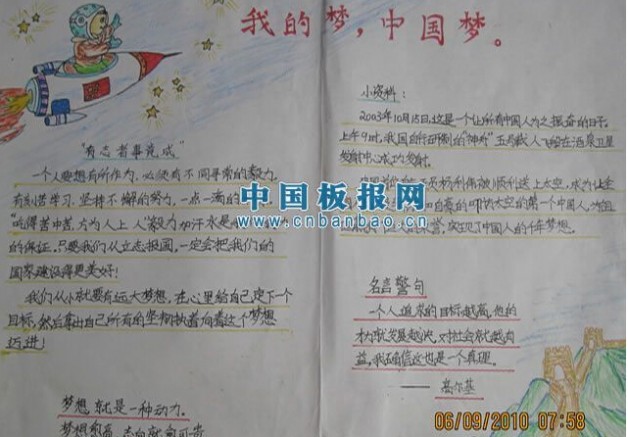 我的梦，中国梦。
"有志者事竟成"
一个人要想有所作为，必须有不同寻常的毅力，
刻苦学习，坚持不懈的努力，一点一滴的
"吃得苦中苦，方为人上人"毅力加汗水是
的保证，只要我们从立志报国，一定会把我们的
国家建设得更美好！
我们从小就要有远大梦想，在心里给自己定下一个
目标，然后拿出自己所有的坚韧执着向着这个梦想
迈进！
梦想就是一种动力。
梦想愈高，志向就愈可贵
小资料：
2003年10月15日，这是一个让所有中国人为之振奋的日子，
上午9时，我国自行研制的"神舟"五号载人飞船在酒泉卫星
发射中心成功发射。
杨利伟被顺利送上太空，成为让全
的叩访太空的第一个中国人，为祖
荣誉，实现了中国人的千年梦想。
名言警句
一个人追求的目标越高，他的
才就发展越快，对社会就越有
益，我确信这也是一个真理。
——高尔基
中国板报网
www.cnbanbao.cn
06/09/2010 07:58